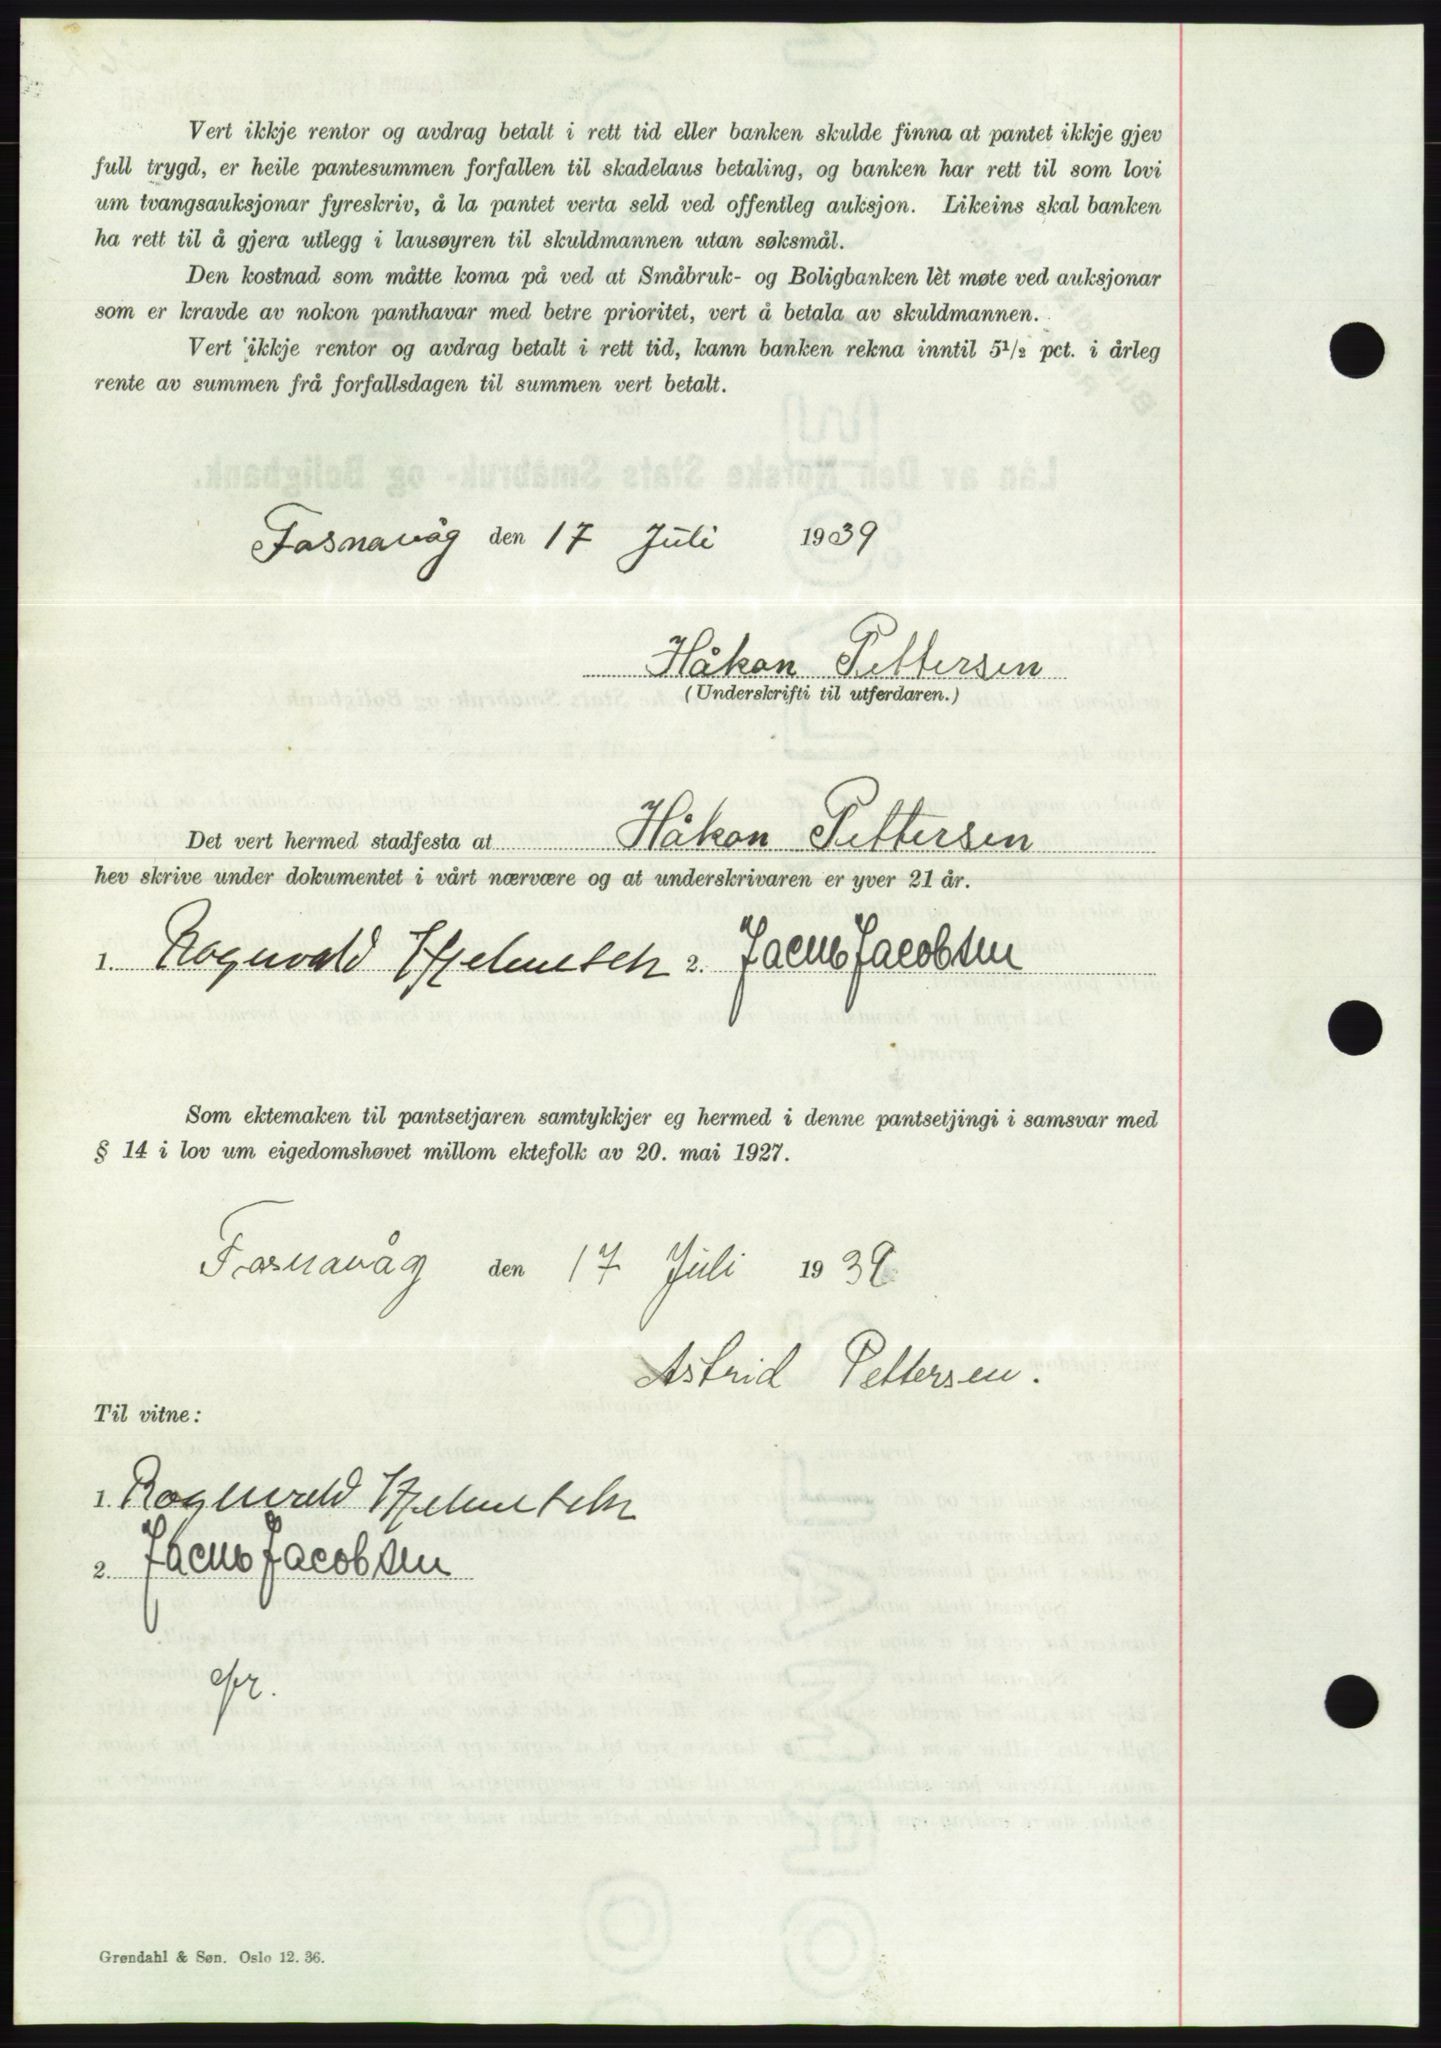 Vert ikkje rentor og avdrag betalt i rett tid eller banken skulde finna at pantet ikkje gjev
full trygd, er heile pantesummen forfallen til skadelaus betaling, og banken har rett til som lovi
um tvangsauksjonar fyreskriv, å la pantet verta seld ved offentleg auksjon. Likeins skal banken
ha rett til å gjera utlegg i lausøyren til skuldmannen utan søksmål.
Den kostnad som måtte koma på ved at Småbruk- og Boligbanken lèt møte ved auksjonar
som er kravde av nokon panthavar med betre prioritet, vert å betala av skuldmannen.
Vert ikkje rentor og avdrag betalt i rett tid, kann banken rekna inntil 5 1/2 pct. i årleg
rente av summen frå forfallsdagen til summen vert betalt.
Fosnavåg den 17 Juli 1939
Håkon Pettersen
(Underskrifti til utferdaren.)
Det vert hermed stadfesta at Håkon Pettersen
hev skrive under dokumentet i vårt nærvære og at underskrivaren er yver 21 år.
1. Rognvald 2. Jacob Jacobsen
Som ektemaken til pantsetjaren samtykkjer eg hermed i denne pantsetjingi i samsvar med
§ 14 i lov um eigedomshøvet millom ektefolk av 20. mai 1927.
Fosnavåg den 17 Juli 1939
Astrid Pettersen.
Til vitne:
1. Rognvald
2. Jacob Jacobsen
Grøndahl & Søn. Oslo 12. 36.